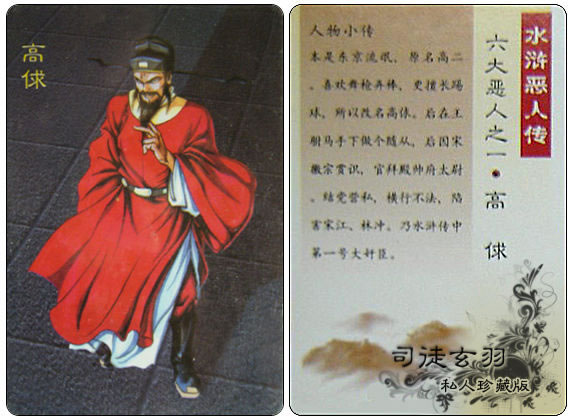 高俅
水浒恶人传
六大恶人之一·高俅
人物小传
本是东京流氓，原名高二
，喜欢舞枪弄棒，更擅长踢
球，所以改名高俅。后在王
驸马手下做个随从。后因宋
徽宗赏识，官拜殿帅府太尉
。结党营私，横行不法，陷
害宋江、林冲。乃水浒传中
第一号大奸臣。
司徒玄羽
私人珍藏版